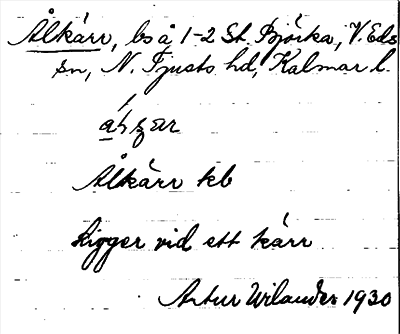 Ålkärr, bs å 1-2 St. Björka, V. Eds
sn, N. Tjusts hd, Kalmar l.
Ålkärr kb
Ligger vid ett kärr
Artur Wilander 1930